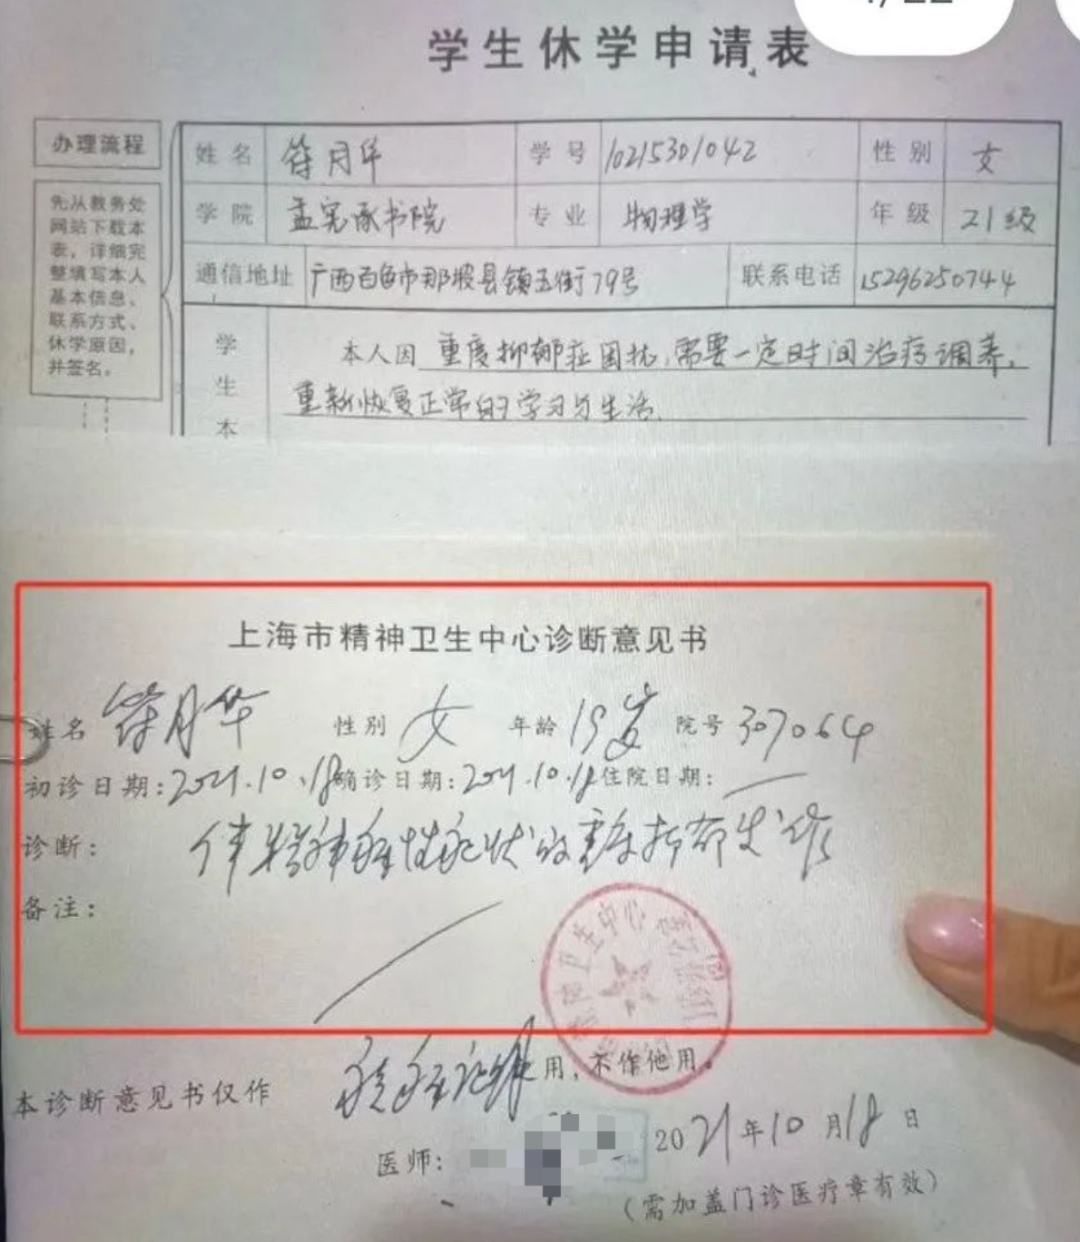 学生休学申请表
办理流程
先从教务处
网站下载本
表，详细完
整填写本人
基本信息、
联系方式、
休学原因，
并签名。
姓名 符月华 学号 10215301042 性别 女
学院 孟宪承书院 专业 物理学 年级 21级
通信地址 广西百色市那坡县镇玉街79号 联系电话 15296250744
学
生
本
本人因 重度抑郁症困扰，需要一定时间治疗调养，
重新恢复正常的学习与生活.
上海市精神卫生中心诊断意见书
姓名 符月华 性别 女 年龄 19岁 院号 307064
初诊日期：2021.10.18 确诊日期：2021.10.18 住院日期：
诊断： 伴精神病性症状的重度抑郁发作
备注：
本诊断意见书仅作 用，不作他用。
医师： 2021年10月18日
（需加盖门诊医疗章有效）